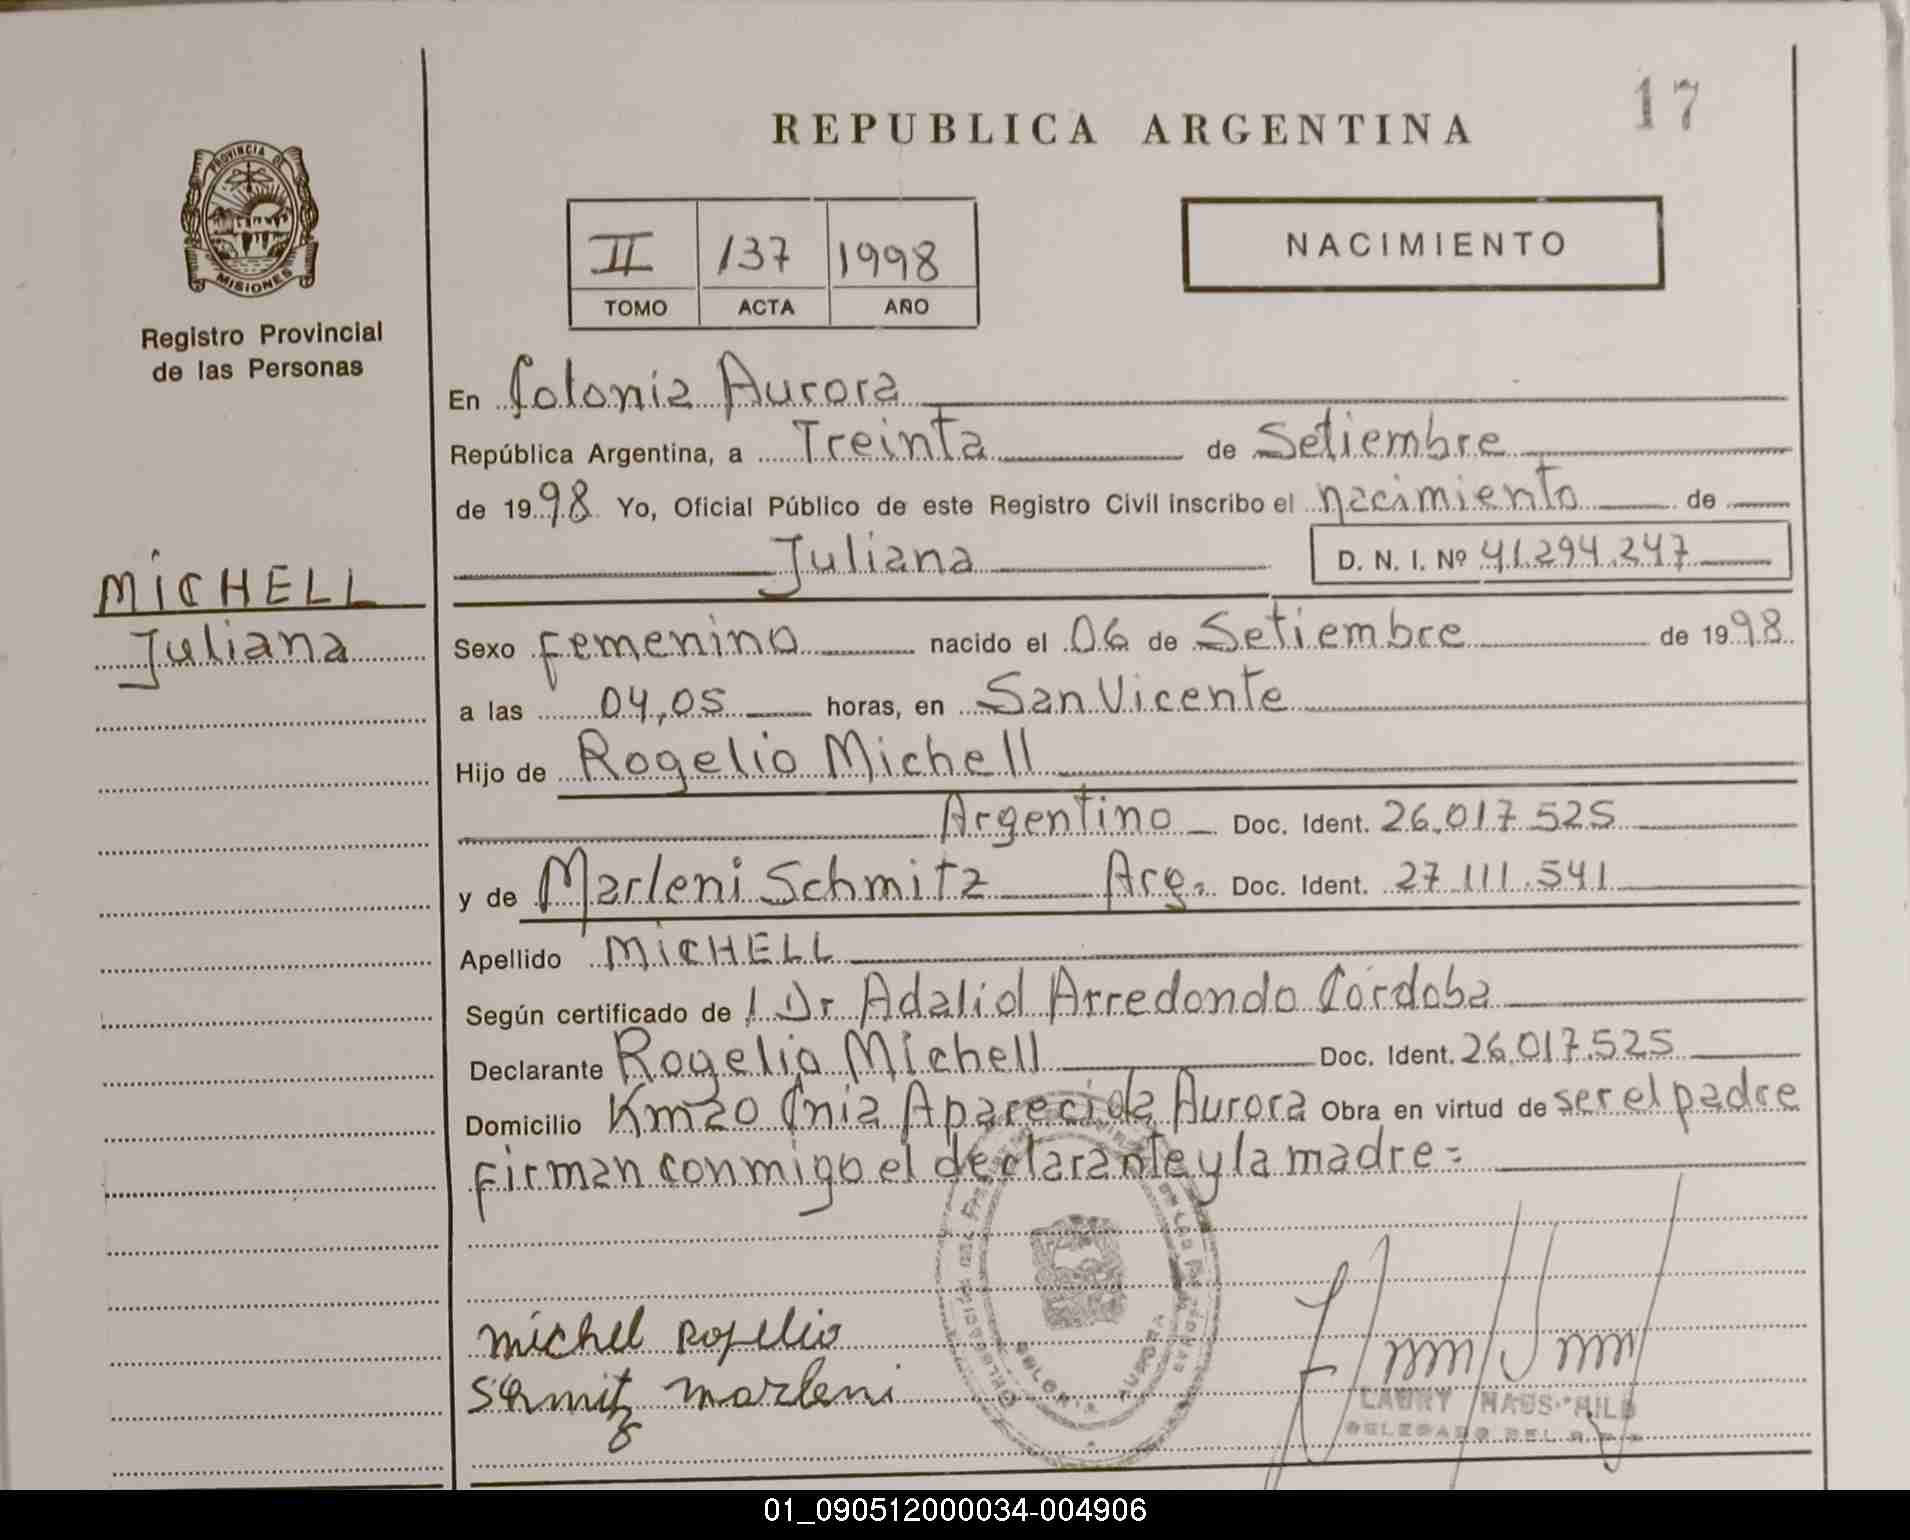 17
REPUBLICA ARGENTINA
PROVINCIA DE
MISIONES
Registro Provincial
de las Personas
II 137 1998
TOMO ACTA AÑO
NACIMIENTO
MICHELL
Juliana
En Colonia Aurora
República Argentina, a Treinta de Setiembre
de 1998 Yo, Oficial Público de este Registro Civil inscribo el nacimiento de
Juliana D. N. I. Nº 41.294.247
Sexo femenino nacido el 06 de Setiembre de 1998
a las 04,05 horas, en San Vicente
Hijo de Rogelio Michell
Argentino Doc. Ident. 26.017.525
y de Marleni Schmitz Arg. Doc. Ident. 27.111.541
Apellido MICHELL
Según certificado de / Dr Adalid Arredondo Córdoba
Declarante Rogelio Michell Doc. Ident. 26.017.525
Domicilio Km20 Cnia Aparecida Aurora Obra en virtud de ser el padre
Firman conmigo el declarante y la madre=
michel Rogelio
Schmitz marleni
COLONIA AURORA
DELEGADO DEL
01_090512000034-004906